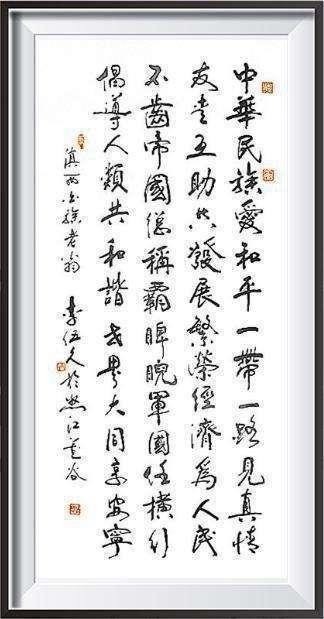 中華民族愛和平一帶一路見真情
友互助共發展繁榮經濟為人民
不齒帝國稱霸睥睨軍國任橫行
倡導人類共和諧世界大同享安寧
滇西白族老翁 李伍久於怒江谷